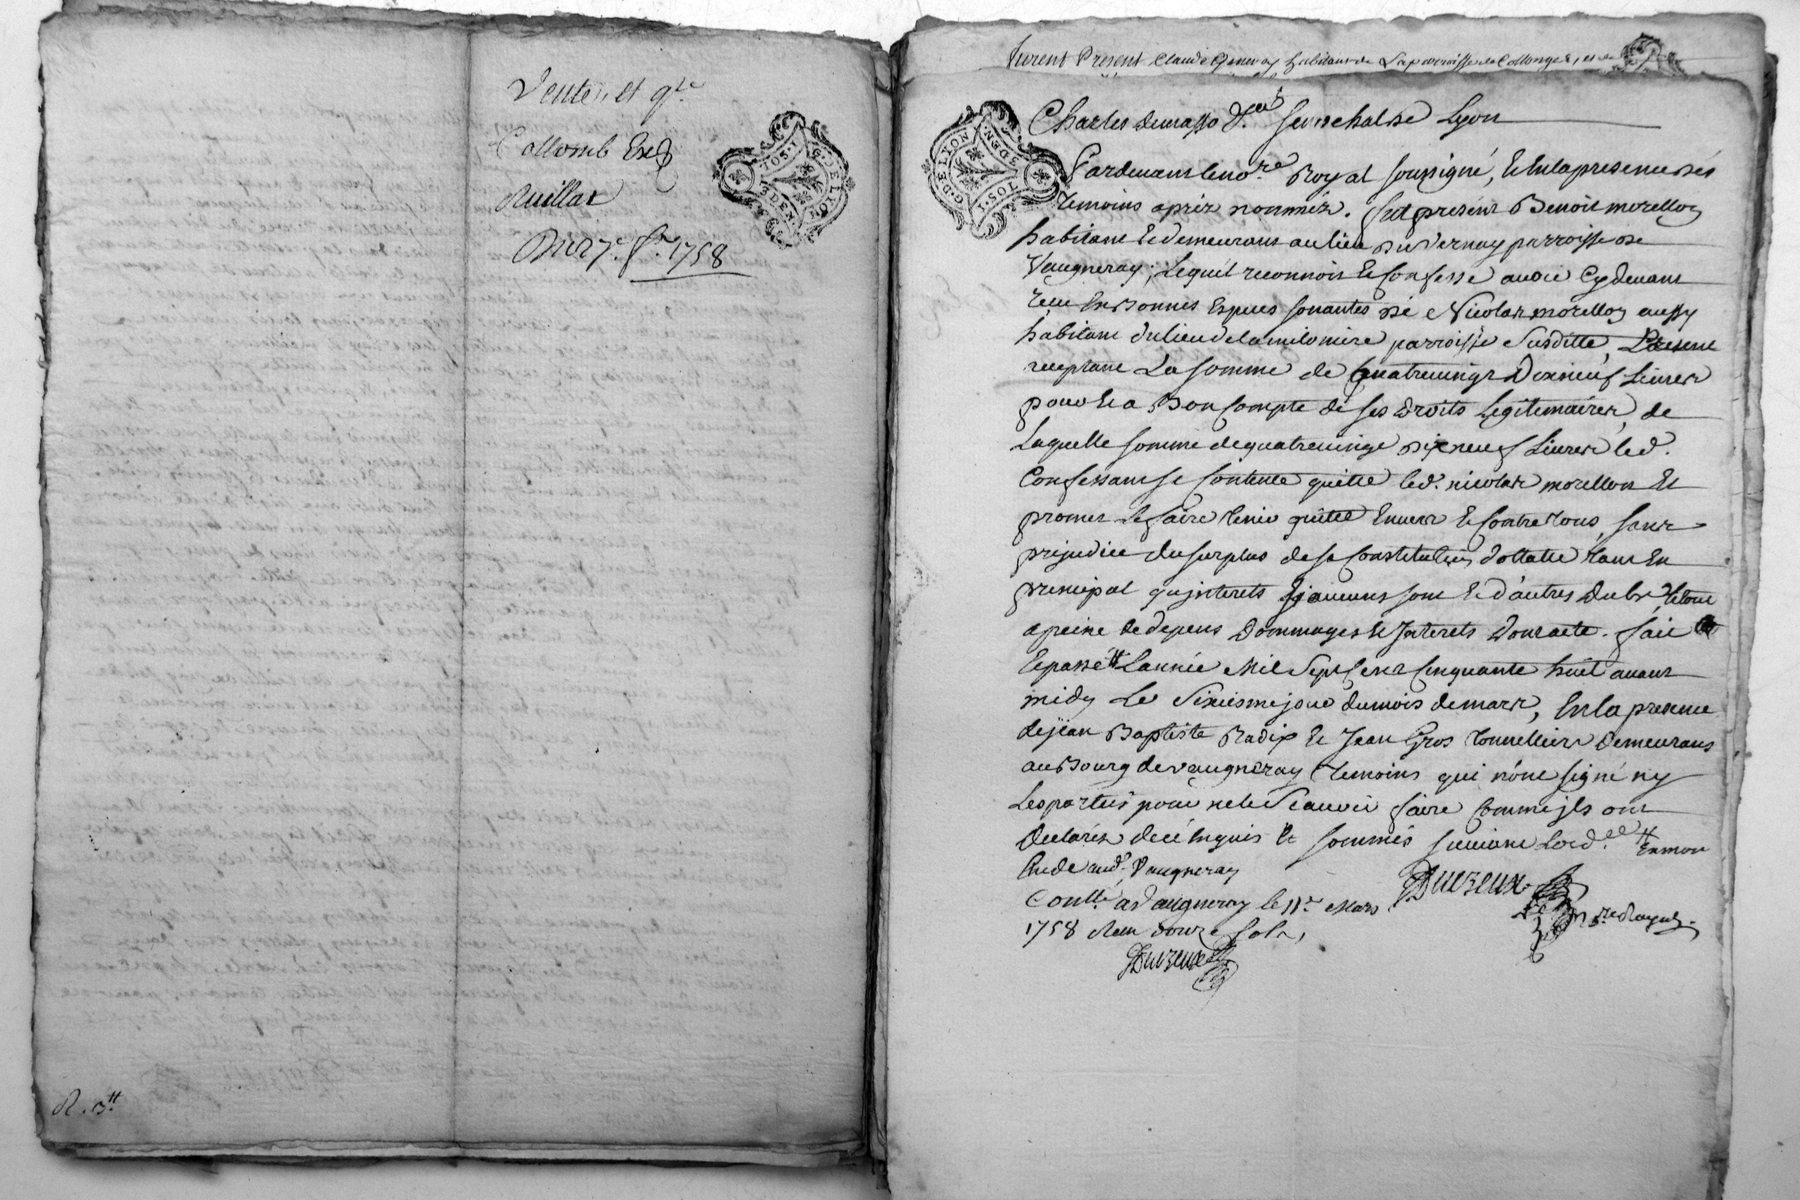 Vente et q.te
Collomb
Ruillat
Du 27.e f.r 1758
G.DE LYON
1.SOL.
3.DEN
R. 3.tt
furent Present Claude habitant de La parroisse de Collonge, et de
G.DE LYON
1.SOL
3.DEN
Charles demasso Senechal de Lyon
Pardevant le no.re Royal soussigné, et En la presence des
temoins aprez nommez. fut present Benoit morellon
habitant et demeurant au lieu du Vernay parroisse de
Vaugneray; Lequel reconnoit et Confesse avoir Cydevant
receu En Bonnes Especes sonantes de Nicolas morellon aussy
habitant du lieu de la milonière parroisse Susditte, Present
acceptant La somme de quatrevingt Dixneuf Livres
pour et a Bon Compte de ses Droits Legitimaires, de
Laquelle somme de quatrevingt dixneuf Livres led.
Confessant se Contente quitte led. nicolas morellon Et
promet Le faire tenir quitte Envers Et Contre tous, sans
prejudice du surplus de sa Constitution dottalle tant En
principal qu'jnterets sj aucuns sont Et d'autres dubs, Le tout
a peine de depens Dommages et Jnterets Dont acte. fait
Et passé L'année Mil Sept Cent Cinquante huit avant
midy Le Sixiesme jour du mois de mars, En la presence
de jean Baptiste Radix Et Jean Gros tonnelliers Demeurans
au Bourg de Vaugneray temoins qui n'ont signé ny
Les parties pour ne le Scavoir faire Comme jls ont
Declarés de ce Enquis Et sommés suivant L'ord.ce tt En mon
Etude aud. Vaugneray
Duvzeux
n.re Royal
Contl.é a Vaugneray le 11.e Mars
1758 Receu douze sols,
Duvzeux